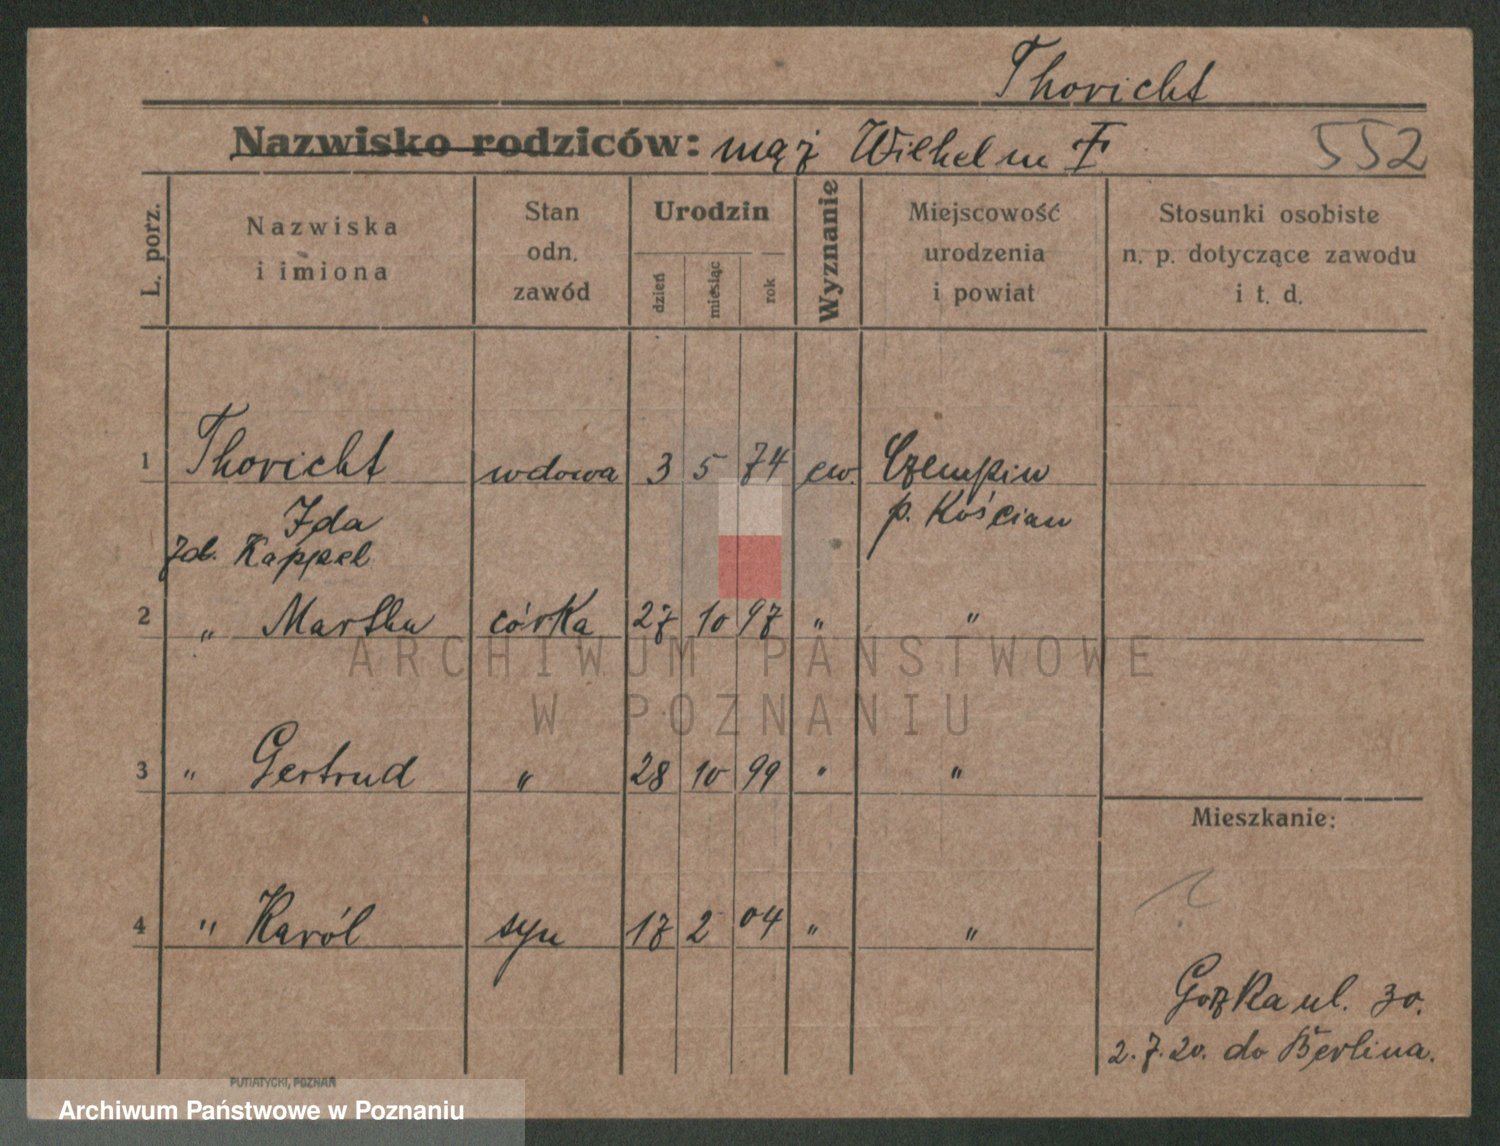 Thoricht
Nazwisko rodziców: mąż Wilhelm I 552
L. porz.
Nazwiska
i imiona
Stan
odn.
zawód
Urodzin
dzień
miesiąc
rok
Wyznanie
Miejscowość
urodzenia
i powiat
Stosunki osobiste
n. p. dotyczące zawodu
i t. d.
1 Thoricht wdowa 3 5 74 ew. Czempin
Ida p. Kościan
Kappel
2 " Martha córka 27 10 97 " "
ARCHIWUM PAŃSTWOWE
W POZNANIU
3 " Gertrud " 28 10 99 " "
Mieszkanie:
4 " Karól syn 17 2 04 " "
ul. 30.
2.7.20. do Berlina.
PUTIATYCKI, POZNAŃ
Archiwum Państwowe w Poznaniu